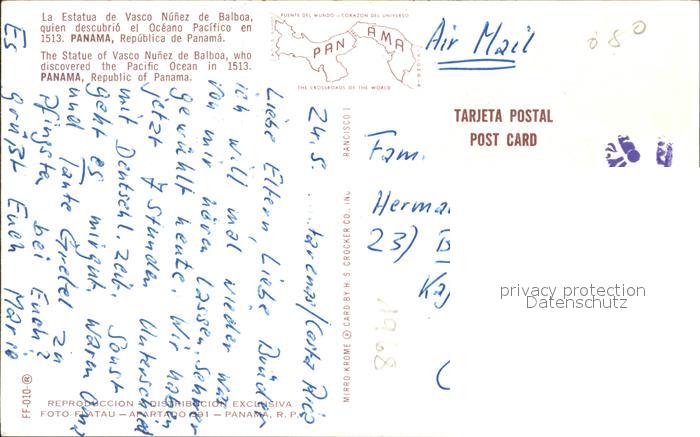 La Estatua de Vasco Núñez de Balboa,
quien descubrió el Océano Pacífico en
1513. PANAMA, República de Panamá.
The Statue of Vasco Nuñez de Balboa, who
discovered the Pacific Ocean in 1513.
PANAMA, Republic of Panama.
PUENTE DEL MUNDO - CORAZON DEL UNIVERSO
PANAMA
THE CROSSROADS OF THE WORLD
Air Mail
080
TARJETA POSTAL
POST CARD
24.5.
Costa Rica
Liebe Eltern, Liebe Brüder
ich will mal wieder was
von mir hören lassen.
gewählt heute. Wir haben
jetzt 7 Stunden Unterschied
mit Deutschl. Zeit. Sonst
geht es mir gut. Waren Oma
und Tante Gretel zu
Pfingsten bei Euch?
Es grüßt Euch Mario
Fam.
Herma
23)
1968
MIRRO-KROME ® CARD BY H. S. CROCKER CO., INC.
RANCISCO 1
FF-010-®
REPRODUCCION - DISTRIBUCION EXCLUSIVA
FOTO FLATAU - APARTADO 691 - PANAMA, R. P.
privacy protection
Datenschutz